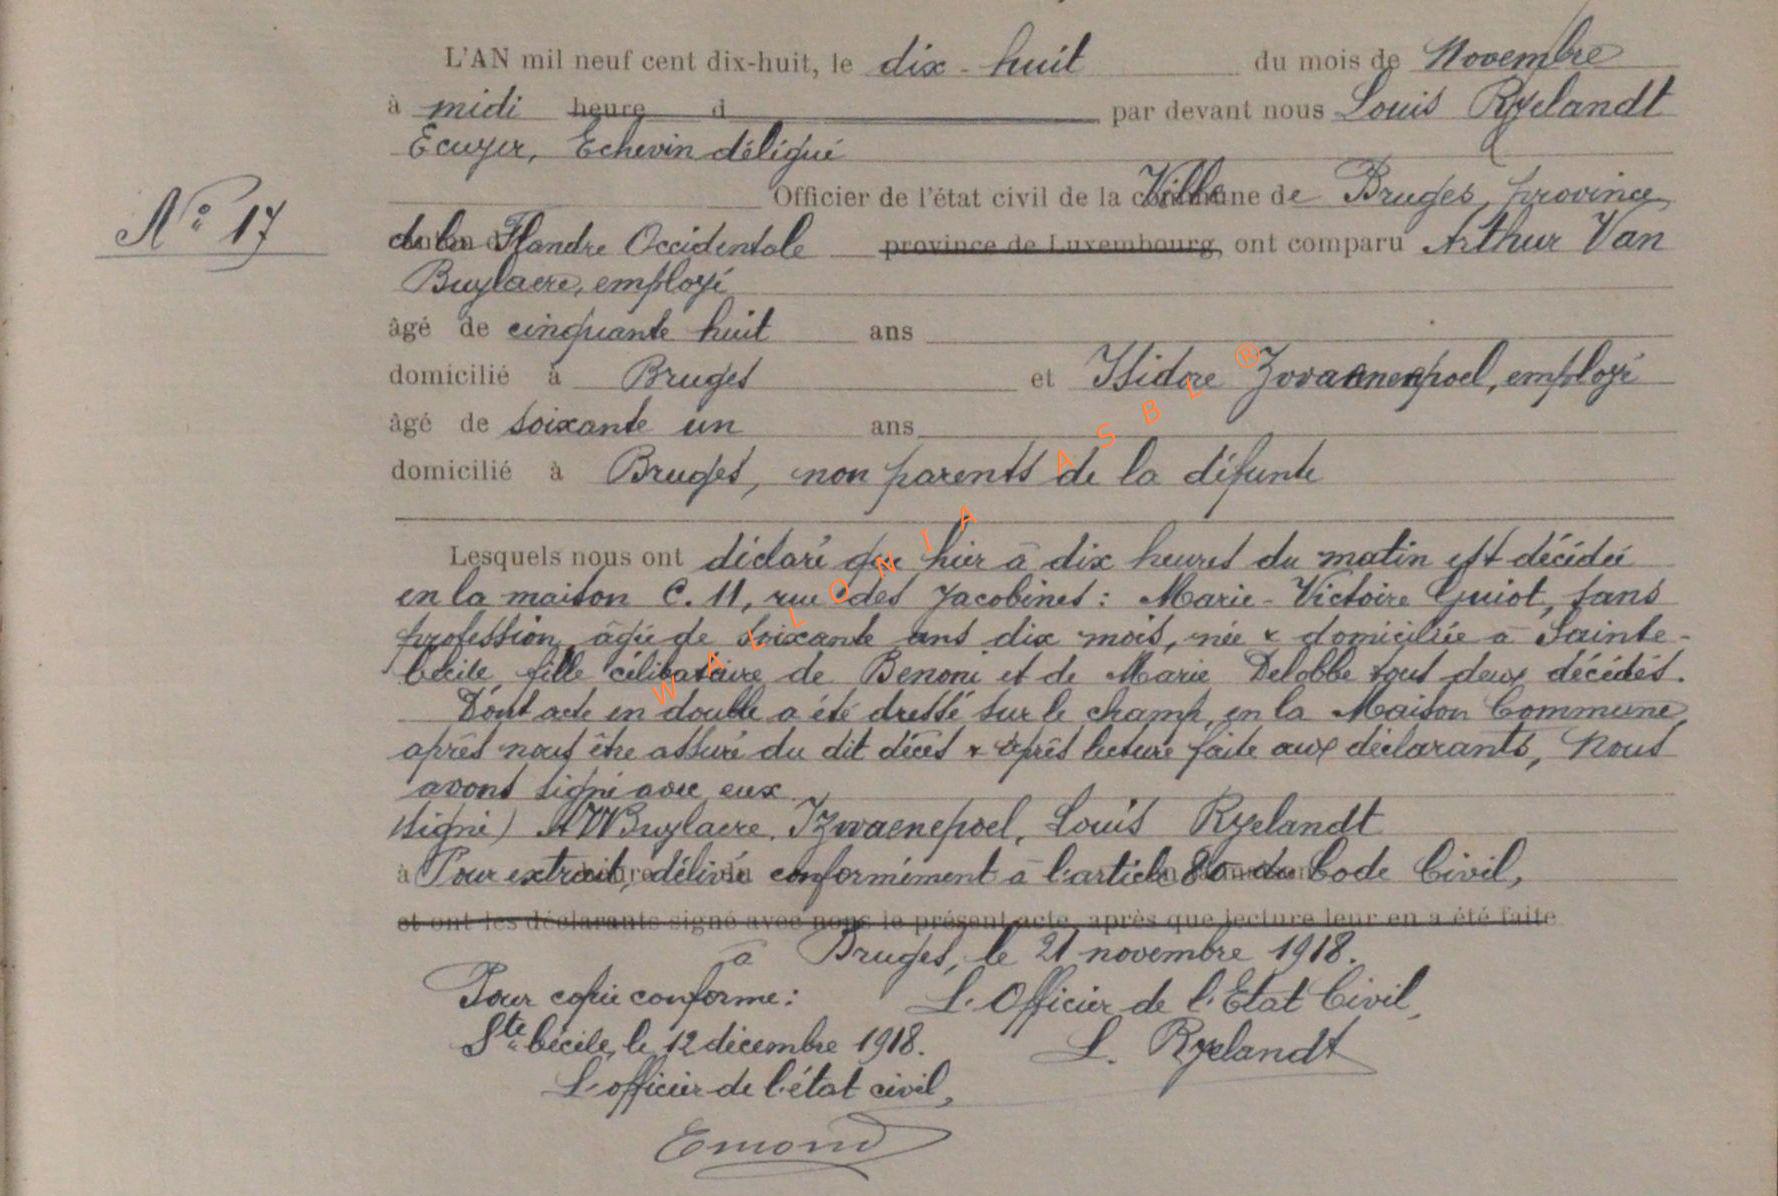 L'AN mil neuf cent dix-huit, le dix-huit du mois de Novembre
à midi heure d par devant nous Louis Ryelandt
Ecuyer, Echevin délégué
Officier de l'état civil de la Ville de Bruges, province
N° 17
de la Flandre Occidentale province de Luxembourg, ont comparu Arthur Van
Buylaere, employé
âgé de cinquante huit ans
domicilié à Bruges et Isidore Zwaenepoel, employé
âgé de soixante un ans
domicilié à Bruges, non parents de la défunte
Lesquels nous ont déclaré que hier à dix heures du matin est décédée
en la maison C. 11, rue des Jacobines : Marie-Victoire Guiot, sans
profession, âgée de soixante ans dix mois, née & domiciliée à Sainte-
Cécile fille célibataire de Benoni et de Marie Delobbe tous deux décédés.
Dont acte en double a été dressé sur le champ, en la Maison Commune,
après nous être assuré du dit décès & après lecture faite aux déclarants, Nous
avons signé avec eux
(signé) A VBuylaere, I Zwaenepoel, Louis Ryelandt
à Pour extrait, délivré conformément à l'article 80 du Code Civil,
et ont les déclarants signé avec nous le présent acte, après que lecture leur en a été faite
à Bruges, le 21 novembre 1918.
Pour copie conforme : L'Officier de l'Etat Civil,
Ste Cécile, le 12 décembre 1918. L. Ryelandt
L'officier de l'état civil,
Emond
WALLONIA ASBL ®